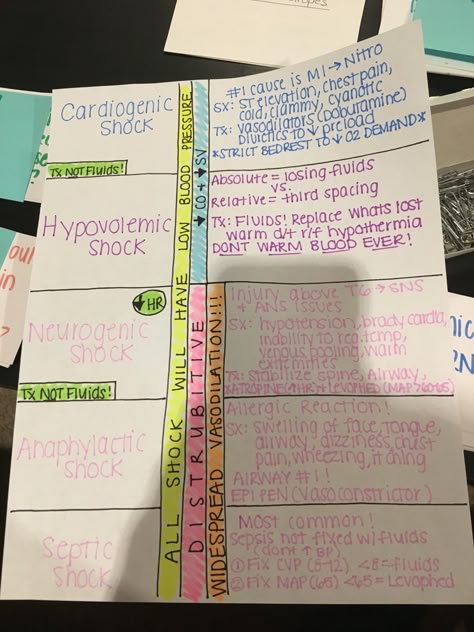 Cardiogenic
Shock
#1 cause is MI → Nitro
SX: ST elevation, chest pain,
cold, clammy, cyanotic
TX: vasodilators (Dobutamine)
Diuretics to ↓ preload
*STRICT BEDREST TO ↓ O2 DEMAND*
TX NOT Fluids!
Hypovolemic
Shock
Absolute = losing fluids
vs.
Relative = third spacing
TX: FLUIDS! Replace whats lost
warm d/t r/f hypothermia
DONT WARM BLOOD EVER!
↓ HR
Neurogenic
Shock
Injury above T6 → SNS
+ ANS issues
SX: hypotension, brady cardia,
inability to reg. temp,
venous pooling, warm
extremities
TX: Stabilize spine, Airway,
TX NOT Fluids!
Anaphylactic
Shock
Allergic Reaction!
SX: swelling of face, tongue,
airway, dizziness, chest
pain, wheezing, itching
AIRWAY #1!
EPI PEN (Vasoconstrictor)
Septic
Shock
Most common!
Sepsis not fixed w/ fluids
(dont ↑ BP)
① Fix CVP (8-12) <8 = fluids
② Fix MAP (65) <65 = Levophed
ALL SHOCK WILL HAVE LOW BLOOD PRESSURE
↓ CO + ↓ SV
DISTRUBITIVE
WIDESPREAD VASODILATION!!!